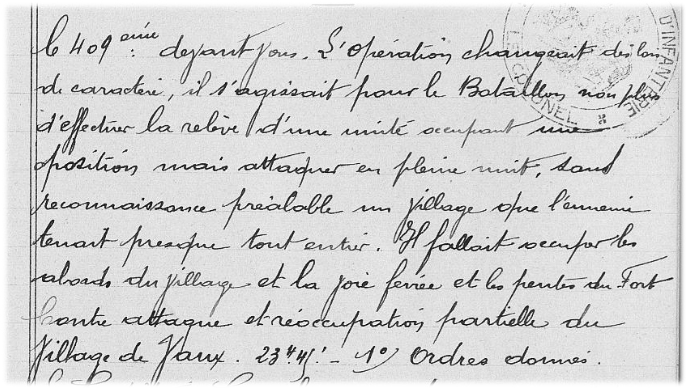 le 409 ème devant Vaux. L'Opération changeait dès lors
de caractère, il s'agissait pour le Bataillon non plus
d'effectuer la relève d'une unité occupant une
position mais attaquer en pleine nuit, sans
reconnaissance préalable un village que l'ennemi
tenait presque tout entier. Il fallait occuper les
abords du village et la voie ferrée et les pentes du Fort
Contre attaque et réoccupation partielle du
Village de Vaux. 23h45! - 1o) Ordres donnés.
D'INFANTERIE
COLONEL